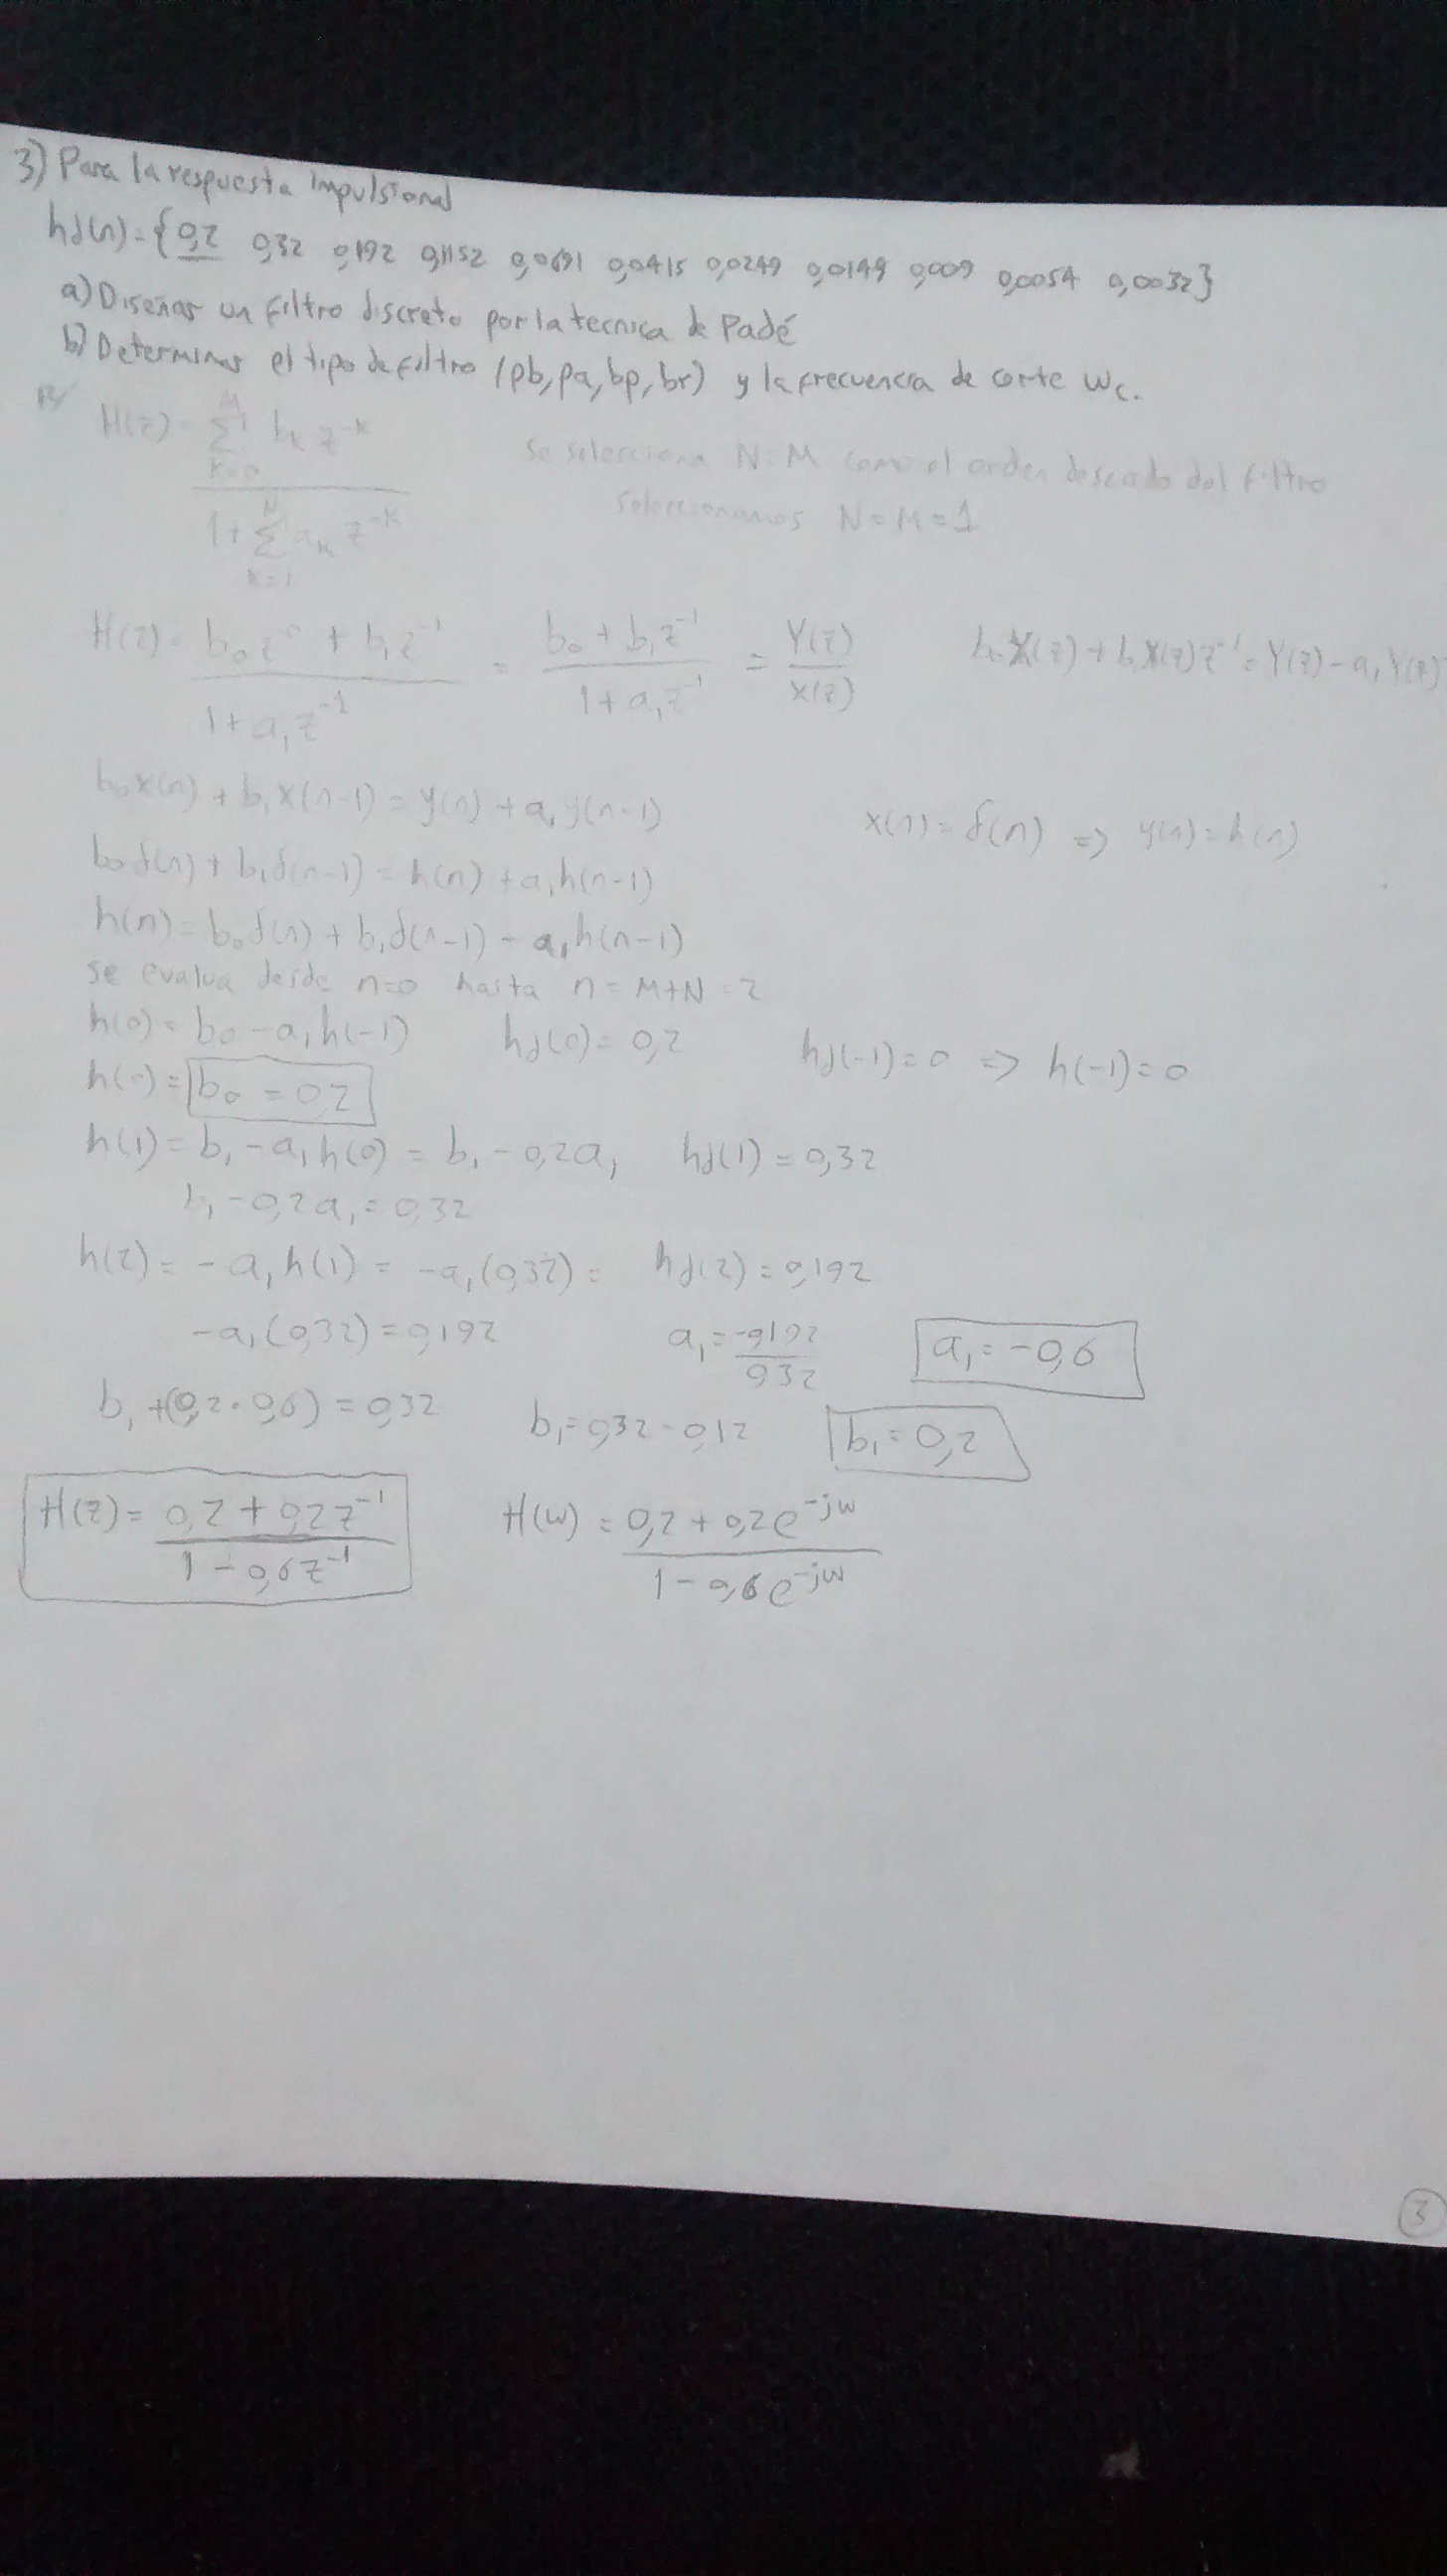 3) Para la respuesta impulsional
hd(n) = {0,2 0,32 0,192 0,1152 0,0691 0,0415 0,0249 0,0149 0,009 0,0054 0,0032}
a) Diseñar un filtro discreto por la tecnica de Padé
b) Determinar el tipo de filtro (pb, pa, bp, br) y la frecuencia de corte wc.
R/
H(z) = Σ_{k=0}^{M} bk z^-k / (1 + Σ_{k=1}^{N} ak z^-k)
se selecciona N=M como el orden deseado del filtro
seleccionamos N = M = 1
H(z) = (b0 z^-0 + b1 z^-1) / (1 + a1 z^-1) = (b0 + b1 z^-1) / (1 + a1 z^-1) = Y(z) / X(z) b0 X(z) + b1 X(z) z^-1 = Y(z) - a1 Y(z)
b0 x(n) + b1 x(n-1) = y(n) + a1 y(n-1) x(n) = δ(n) => y(n) = h(n)
b0 δ(n) + b1 δ(n-1) = h(n) + a1 h(n-1)
h(n) = b0 δ(n) + b1 δ(n-1) - a1 h(n-1)
se evalua desde n=0 hasta n = M+N = 2
h(0) = b0 - a1 h(-1) hd(0) = 0,2 hd(-1) = 0 => h(-1) = 0
h(0) = b0 = 0,2
h(1) = b1 - a1 h(0) = b1 - 0,2 a1 hd(1) = 0,32
b1 - 0,2 a1 = 0,32
h(2) = - a1 h(1) = -a1 (0,32) = hd(2) = 0,192
-a1 (0,32) = 0,192 a1 = -0,192 / 0,32 a1 = -0,6
b1 + (0,2 · 0,6) = 0,32 b1 = 0,32 - 0,12 b1 = 0,2
H(z) = (0,2 + 0,2 z^-1) / (1 - 0,6 z^-1) H(w) = (0,2 + 0,2 e^-jw) / (1 - 0,6 e^-jw)
3